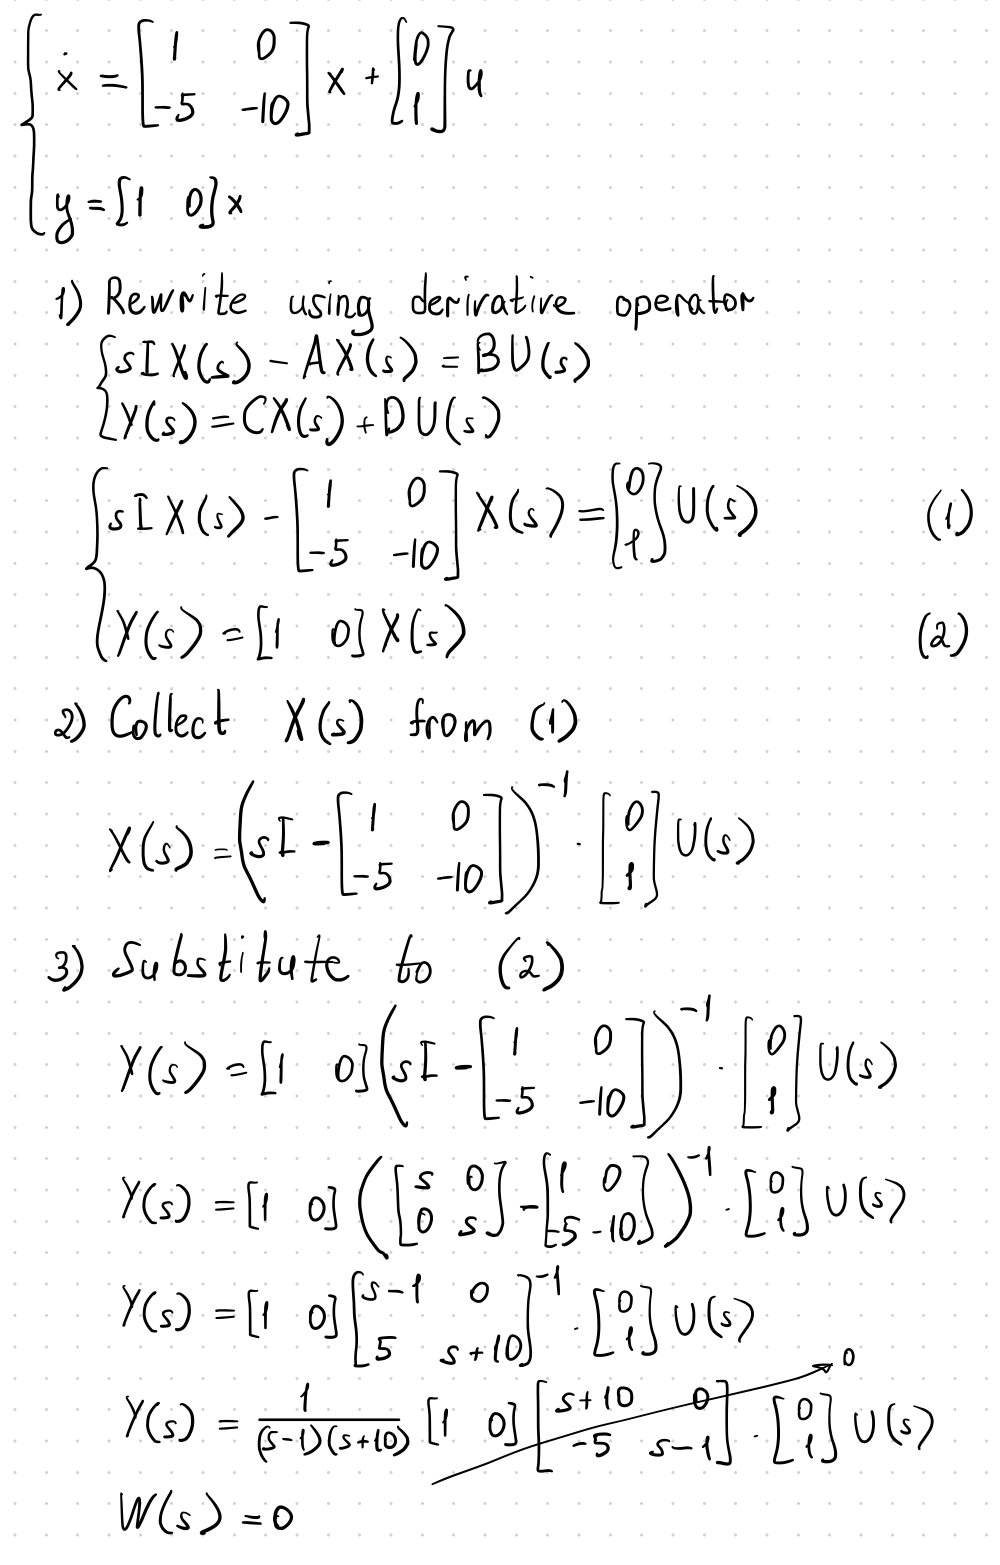 ẋ = [1 0; -5 -10] x + [0; 1] u
y = [1 0] x
1) Rewrite using derivative operator
sIX(s) - AX(s) = BU(s)
Y(s) = CX(s) + DU(s)
sIX(s) - [1 0; -5 -10] X(s) = [0; 1] U(s) (1)
Y(s) = [1 0] X(s) (2)
2) Collect X(s) from (1)
X(s) = (sI - [1 0; -5 -10])^-1 · [0; 1] U(s)
3) Substitute to (2)
Y(s) = [1 0] (sI - [1 0; -5 -10])^-1 · [0; 1] U(s)
Y(s) = [1 0] ([s 0; 0 s] - [1 0; -5 -10])^-1 · [0; 1] U(s)
Y(s) = [1 0] [s-1 0; 5 s+10]^-1 · [0; 1] U(s)
Y(s) = 1/((s-1)(s+10)) [1 0] [s+10 0; -5 s-1] · [0; 1] U(s) → 0
W(s) = 0